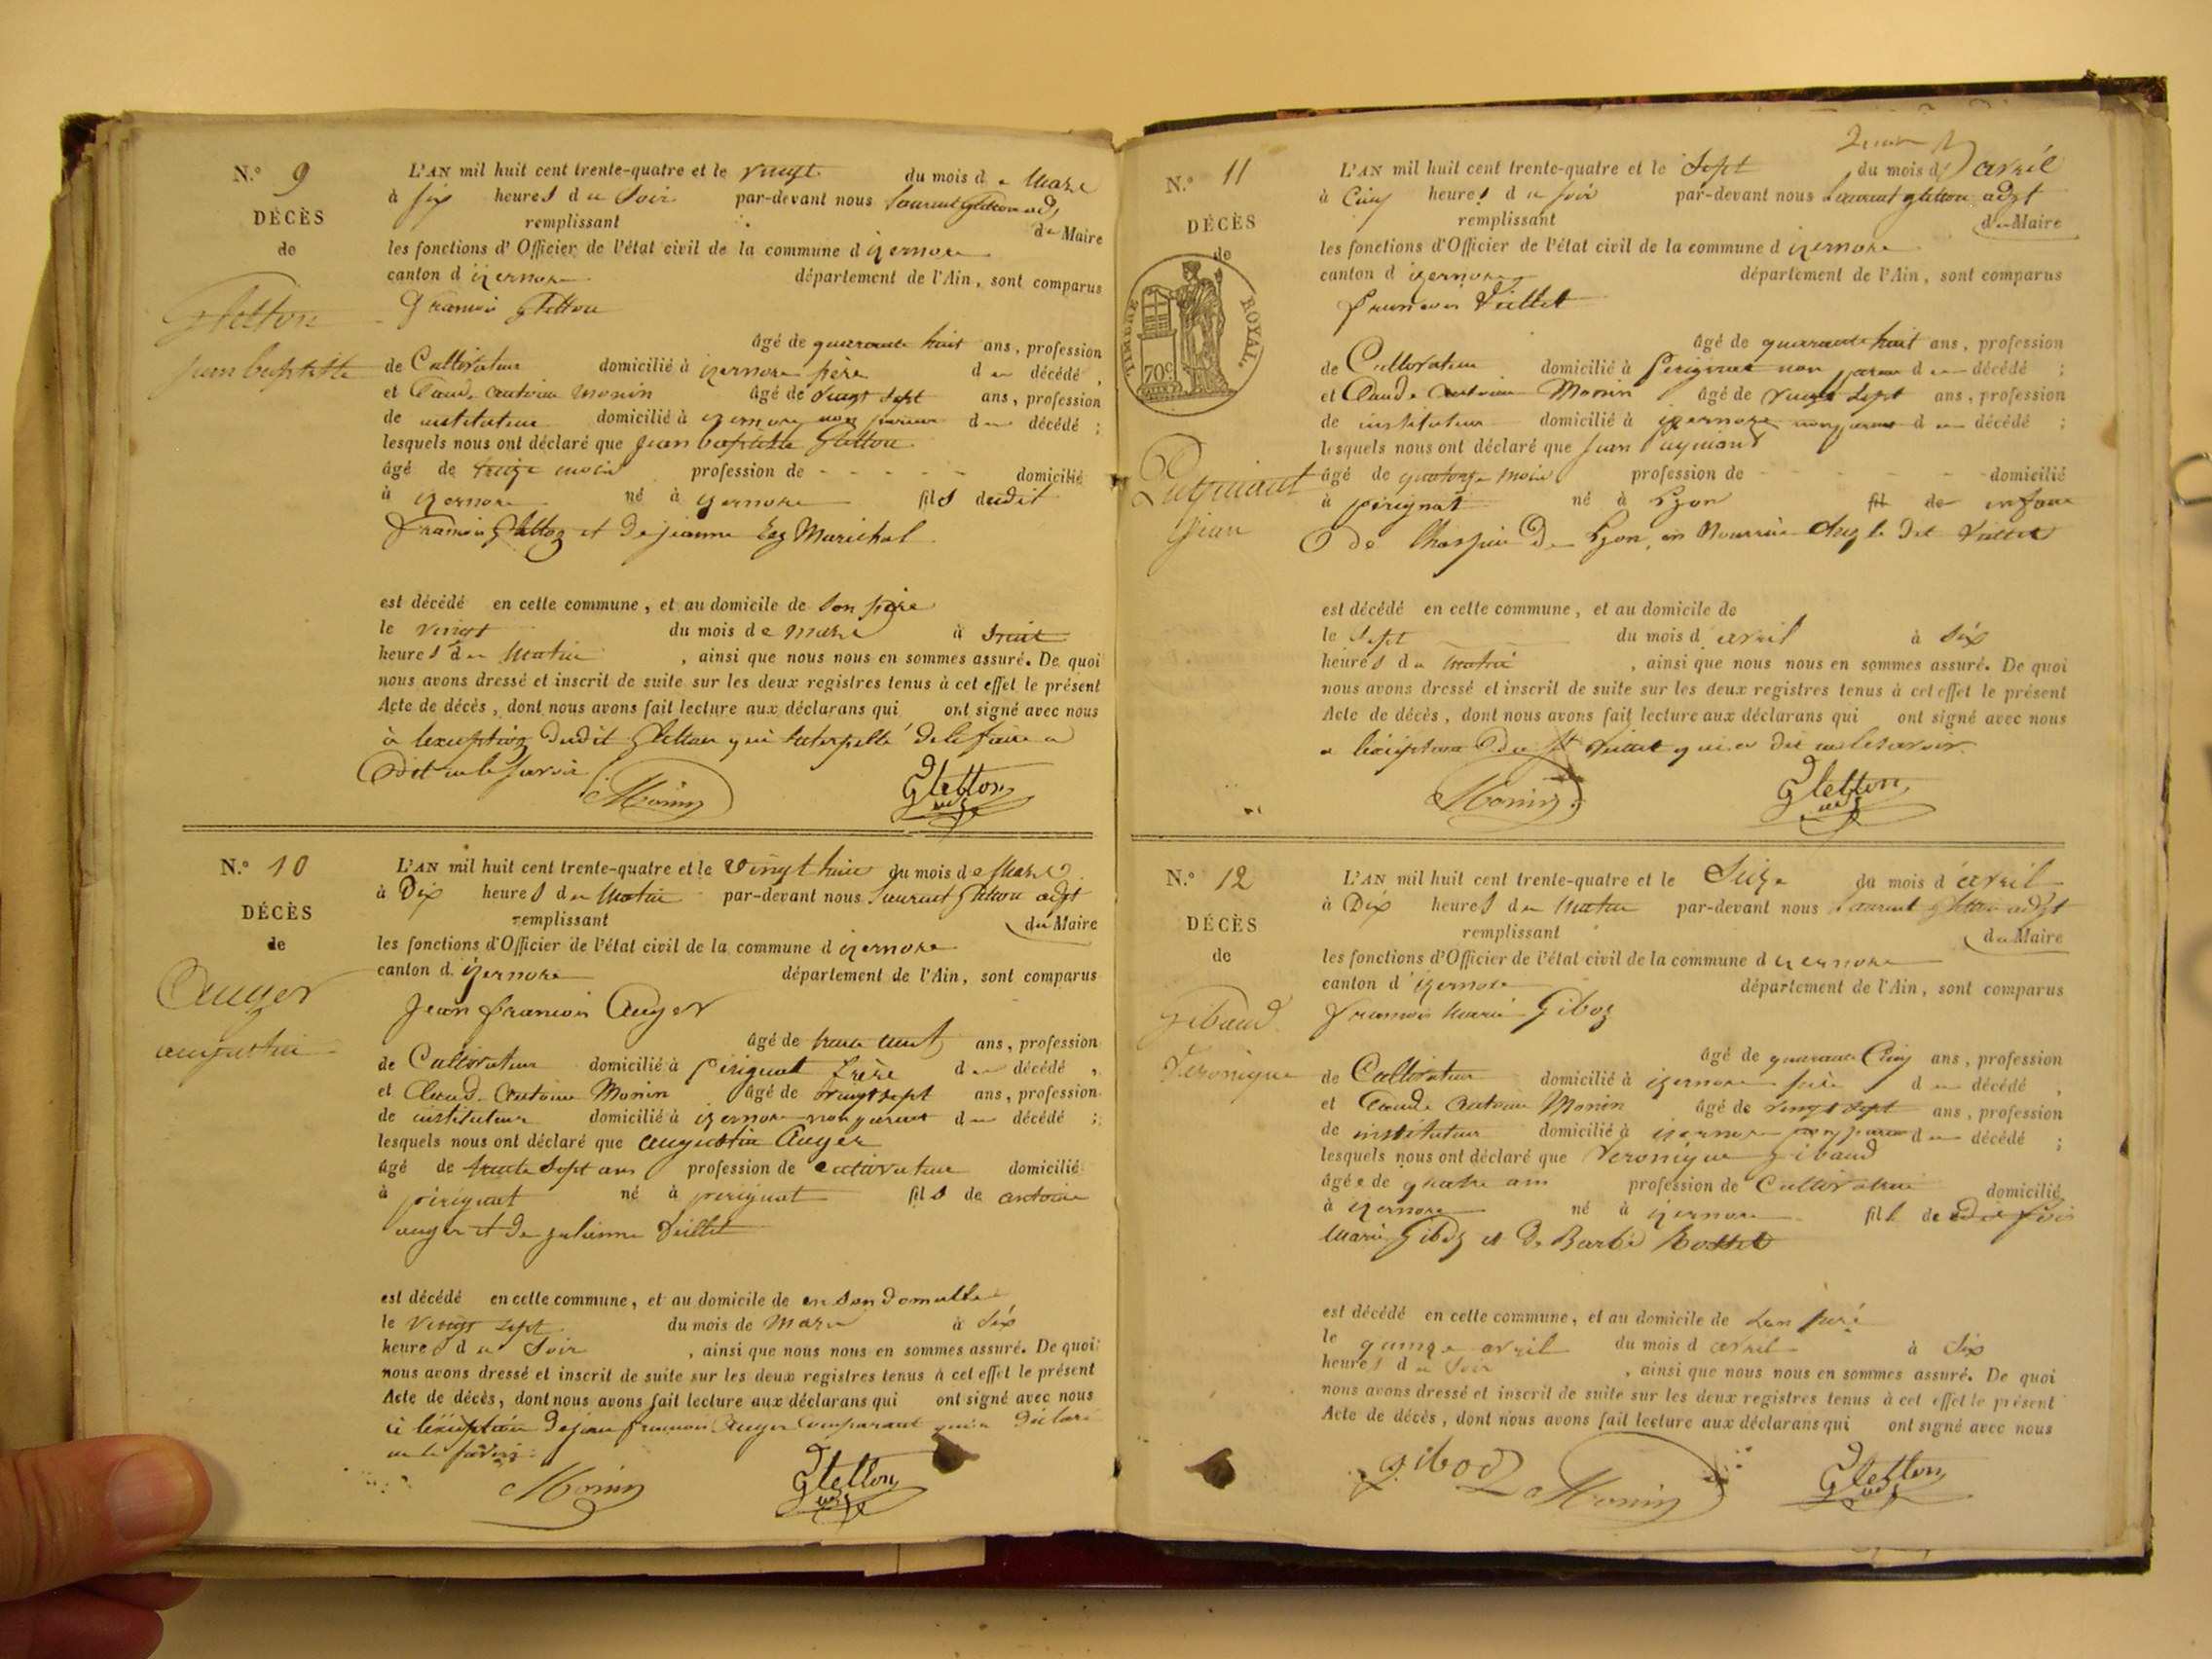 N.° 9
DÉCÈS
de
Gletton
jean baptiste
L'AN mil huit cent trente-quatre et le vingt du mois de Mars
à six heures du Soir par-devant nous Laurent Gletton adj
remplissant
de Maire
les fonctions d'Officier de l'état civil de la commune d izernore
canton d izernore département de l'Ain, sont comparus
françois Gletton
âgé de quarante huit ans, profession
de Cultivateur domicilié à izernore père du décédé,
et Claude antoine Monin âgé de vingt sept ans, profession
de instituteur domicilié à izernore non parent du décédé ;
lesquels nous ont déclaré que jean baptiste Gletton
âgé de treize mois profession de - - - - - domicilié
à izernore né à izernore fils dudit
françois Gletton et de jeanne Marichal
est décédé en cette commune, et au domicile de son père
le vingt du mois de mars à
heures du Matin, ainsi que nous nous en sommes assuré. De quoi
nous avons dressé et inscrit de suite sur les deux registres tenus à cet effet le présent
Acte de décès, dont nous avons fait lecture aux déclarans qui ont signé avec nous
à lexception dudit Gletton qui interpellé de le faire a
dit ne le savoir
Monin Gletton adj
N.° 10
DÉCÈS
de
Auger
augustin
L'AN mil huit cent trente-quatre et le vingt huit du mois de Mars
à Dix heures du Matin par-devant nous Laurent Gletton adjt
remplissant
du Maire
les fonctions d'Officier de l'état civil de la commune d izernore
canton d. izernore département de l'Ain, sont comparus
jean françois Auger
âgé de trente ans, profession
de Cultivateur domicilié à pérignat frère du décédé,
et Claude Antoine Monin âgé de vingt sept ans, profession
de instituteur domicilié à izernore non parent du décédé ;
lesquels nous ont déclaré que augustin Auger
âgé de trente sept ans profession de cultivateur domicilié
à pérignat né à pérignat fils de antoine
auger et de julienne Vuillet
est décédé en cette commune, et au domicile de en son domicille
le vingt sept du mois de Mars à six
heures du Soir, ainsi que nous nous en sommes assuré. De quoi
nous avons dressé et inscrit de suite sur les deux registres tenus à cet effet le présent
Acte de décès, dont nous avons fait lecture aux déclarans qui ont signé avec nous
à lexception de jean françois Auger comparant qui a déclaré
ne le savoir.
Monin Gletton adj
N.° 11
DÉCÈS
de
TIMBRE ROYAL.
70c
jean
L'AN mil huit cent trente-quatre et le Sept du mois d avril
à Cinq heures du soir par-devant nous Laurent gletton adjt
remplissant
du Maire
les fonctions d'Officier de l'état civil de la commune d izernore
canton d izernore département de l'Ain, sont comparus
françois Vuillet
âgé de quarante huit ans, profession
de Cultivateur domicilié à Pérignat non parent du décédé ;
et Claude Antoine Monin âgé de vingt sept ans, profession
de instituteur domicilié à izernore non parent du décédé ;
lesquels nous ont déclaré que jean
âgé de quatorze mois profession de - - - - - domicilié
à pérignat né à Lyon fil de enfant
de lhospice de Lyon, en Nourrice chez le dit Vuillet
est décédé en cette commune, et au domicile de
le sept du mois d avril à six
heures du matin, ainsi que nous nous en sommes assuré. De quoi
nous avons dressé et inscrit de suite sur les deux registres tenus à cet effet le présent
Acte de décès, dont nous avons fait lecture aux déclarans qui ont signé avec nous
a lexception du st Vuillet qui a dit ne le savoir.
Monin Gletton adj
N.° 12
DÉCÈS
de
gibaud
Veronique
L'AN mil huit cent trente-quatre et le Seize du mois d avril
à Dix heures du Matin par-devant nous Laurent gletton adjt
remplissant
du Maire
les fonctions d'Officier de l'état civil de la commune d izernore
canton d izernore département de l'Ain, sont comparus
françois Marie Giboz
âgé de quarante Cinq ans, profession
de Cultivateur domicilié à izernore père du décédé,
et Claude Antoine Monin âgé de vingt sept ans, profession
de instituteur domicilié à izernore non parent du décédé ;
lesquels nous ont déclaré que Veronique gibaud
âgée de quatre ans profession de Cultivatrice domicilié
à izernore né à izernore fill de
Marie Giboz et de Barbe Rosset
est décédé en cette commune, et au domicile de son père
le quinze avril du mois d avril à Six
heures du Soir, ainsi que nous nous en sommes assuré. De quoi
nous avons dressé et inscrit de suite sur les deux registres tenus à cet effet le présent
Acte de décès, dont nous avons fait lecture aux déclarans qui ont signé avec nous
giboz Monin Gletton adj